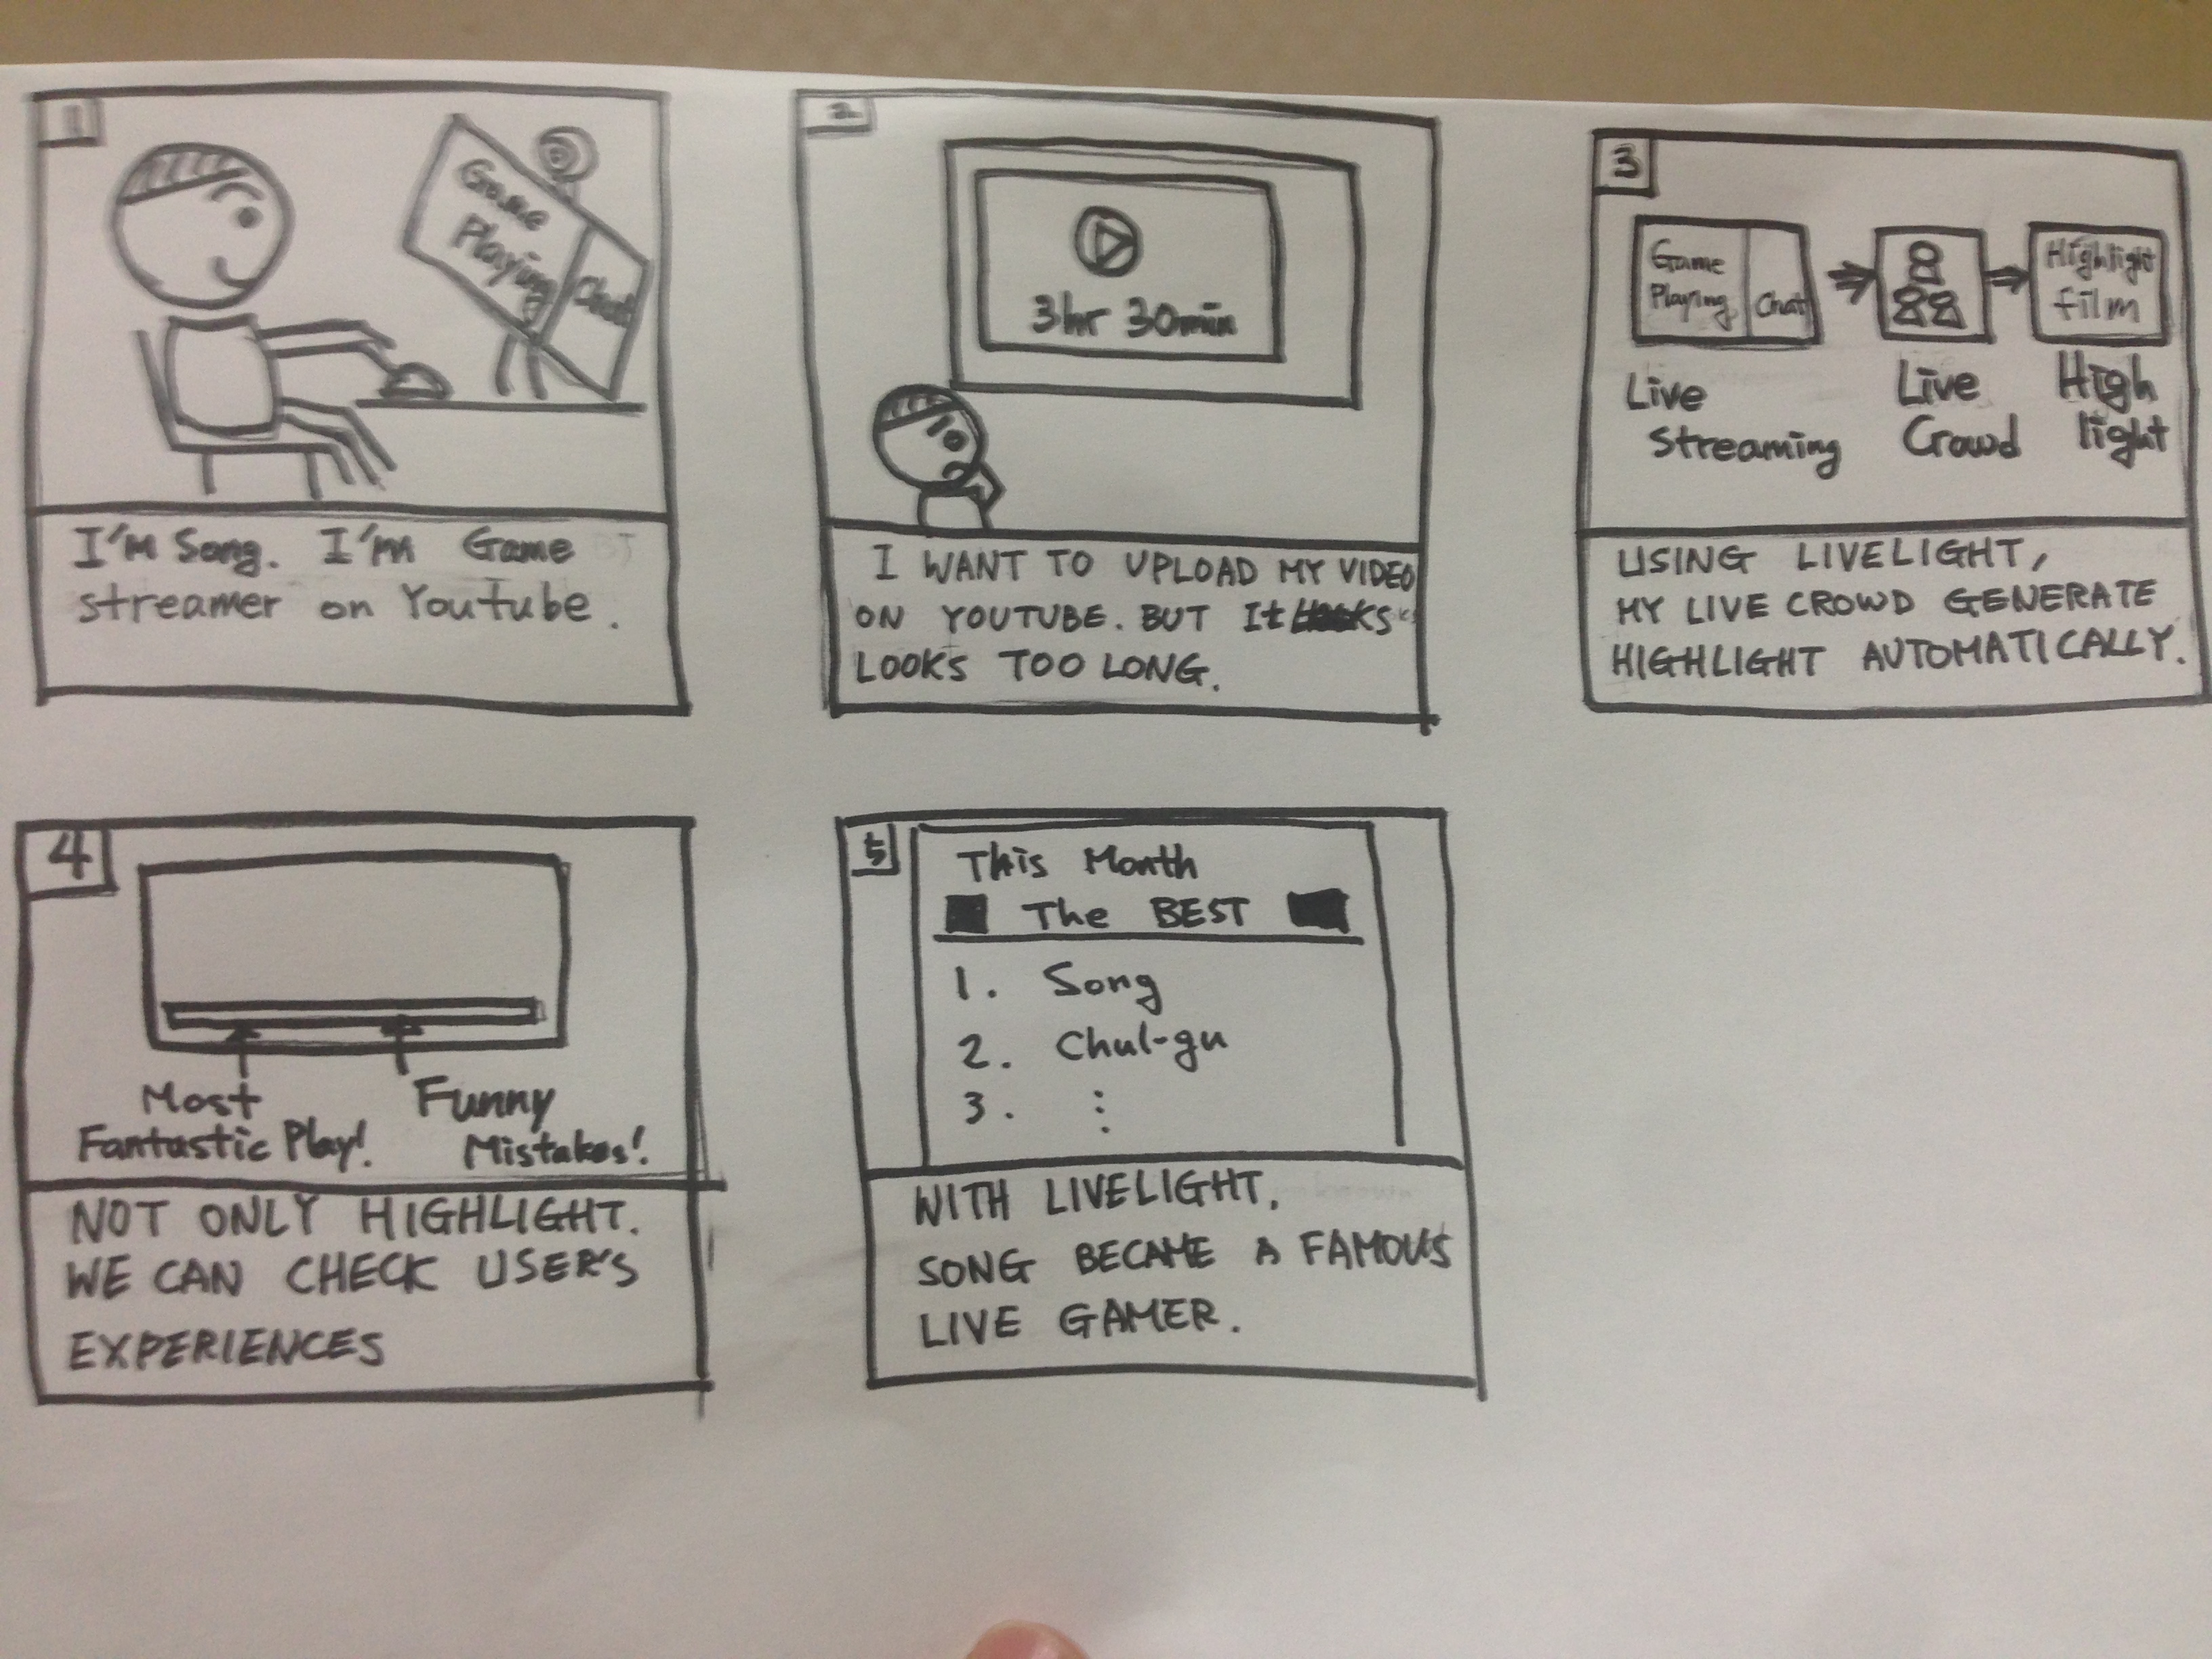 1
Game
Playing
Chat
I'm Song. I'm Game
streamer on Youtube.
2
3hr 30min
I WANT TO UPLOAD MY VIDEO
ON YOUTUBE. BUT It
LOOKS TOO LONG.
3
Game
Playing
Chat
Highlight
film
Live
Streaming
Live
Crowd
High
light
USING LIVELIGHT,
MY LIVE CROWD GENERATE
HIGHLIGHT AUTOMATICALLY.
4
Most
Fantastic Play!
Funny
Mistakes!
NOT ONLY HIGHLIGHT.
WE CAN CHECK USER'S
EXPERIENCES
5
This Month
The BEST
1. Song
2. Chul-gu
3. :
WITH LIVELIGHT,
SONG BECAME A FAMOUS
LIVE GAMER.